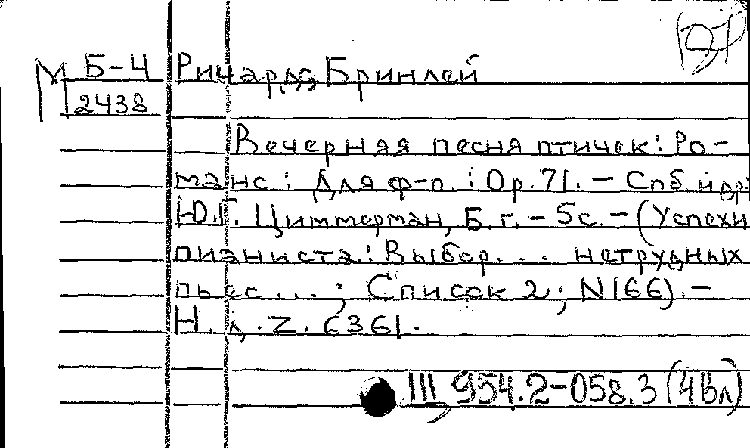 М Б-4 Ричардс, Бринлей
2438
Вечерняя песня птичек: Ро-
манс: Для ф-п.: Op. 71. – Спб и др.:
Ю.Г. Циммерман, Б.г. – 5с. – (Успехи
пианиста: Выбор... нетрудных
пьес...; Список 2; N166). –
Н.д. Z. 6361.
III 954.2-058.3 (4Вл)